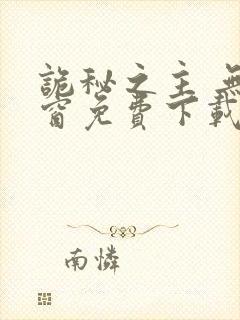 詭秘之主 無
窗免費下載
南憐